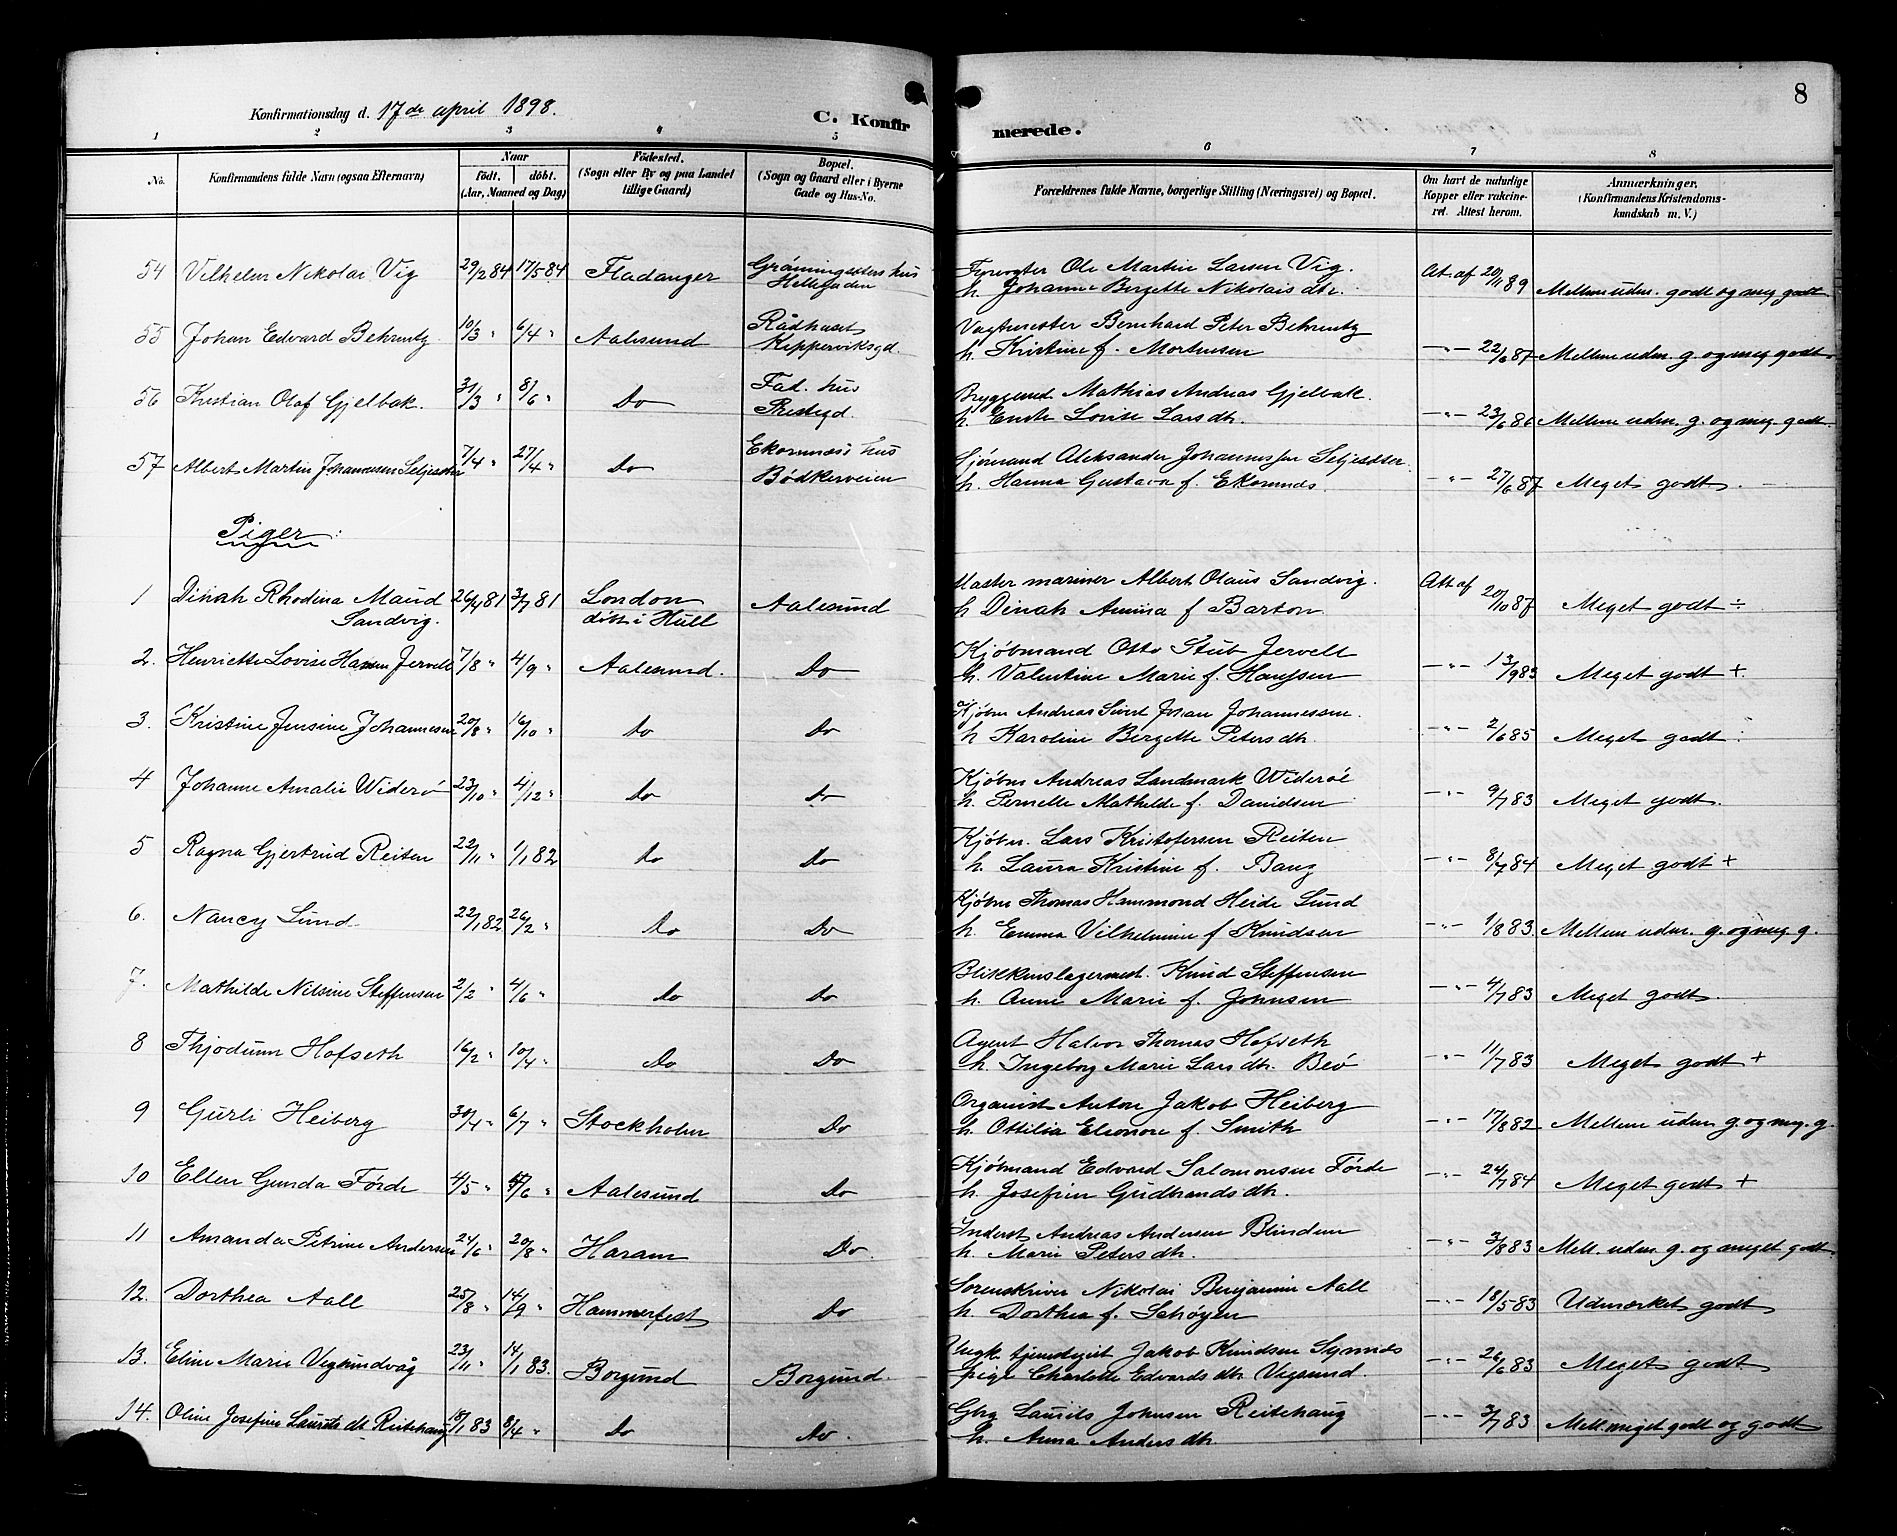 Konfirmationsdag d. 17de april 1898.
C. Konfirmerede.
8
1 2 3 4 5 6 7 8
No. Konfirmandens fulde Navn (ogsaa Efternavn) Naar født. døbt. (Aar, Maaned og Dag) Fødested. (Sogn eller By og paa Landet tillige Gaard) Bopæl. (Sogn og Gaard eller i Byerne Gade og Hus-No. Forældrenes fulde Navne, borgerlige Stilling (Næringsvei) og Bopæl. Om havt de naturlige Kopper eller vakcineret. Attest herom. Anmærkninger. (Konfirmandens Kristendomskundskab m. V.)
54 Vilhelm Nikolai Vig 29/2 84 17/5 84 Fladanger Helle gaden Fyrvogter Ole Martin Larsen Vig. At. af 20/11 89
h. Johanne Bergette Nikolaisdtr. Mellem udm. godt og meg. godt
55 Johan Edvard Behrentz 10/3 " 6/4 " Aalesund Rådhuset Kipperviksgd. Vagtmester Bernhard Peter Behrentz
h. Kristine f. Mortensen -"- 22/6 87 Mellem udm. g. og meg. godt
56 Kristian Olaf Gjelbak. 31/3 " 8/6 " Do Fad. hus Prestegd. Bryggemd Mathias Andreas Gjelbak.
h. Lovise Larsdtr. -"- 23/6 86 Mellem udm. g. og meg. godt.
57 Albert Martin Johannesen Seljesæter 7/4 " 27/4 " Do Ekornnes's hus Bødkerveien Sjømand Aleksander Johannessen Seljesæter.
h. Hanna Gustava f. Ekornnæs. -"- 27/6 87 Meget godt.
Piger:
1 Dinah Rhodina Maud Sandvig. 26/4 81 3/7 81 London døbt i Hull Aalesund Master mariner Albert Olaus Sandvig. Att af 20/10 87
h Dinah Annina f Barton Meget godt ÷
2. Henriette Lovise Hansen Jervell 7/8 " 4/9 " Aalesund. Do Kjøbmand Otto Stub Jervell
h. Valentine Marie f. Hanssen -"- 13/9 83 Meget godt +
3. Kristine Jensine Johannesen 20/8 " 16/10 " Do Do Kjøbm Andreas Sivert Johan Johannessen.
h Karoline Bergette Petersdtr. -"- 2/6 85 Meget godt
4 Johanne Amalie Widerø 23/10 " 4/12 " Do Do Kjøbm Andreas Landmark Widerøe
h. Pernelle Mathilde f. Davidsen -"- 9/7 83 Meget godt.
5 Ragna Gjertrud Reiten 22/11 " 1/1 82 Do Do Kjøbm. Lars Kristofersen Reiten
h. Laura Kristine f. Bang -"- 8/7 84 Meget godt +
6. Nancy Lund 22/1 82 26/2 " Do Do Kjøbm Thomas Hammond Heide Lund
h. Emma Vilhelmine f Knudsen -"- 1/8 83. Mellem udm. g. og meg. g.
7. Mathilde Nilsine Steffensen 2/2 " 4/6 " Do Do Blikkenslagermest. Knud Steffensen
h. Anne Marie f. Johnsen -"- 4/7 83 Meget godt.
8 Thjodunn Hofseth 16/2 " 10/4 " Do Do Agent Halvor Thomas Hofseth
h. Ingeborg Marie Larsdtr. Beø -"- 11/7 83 Meget godt +
9 Gurli Heiberg 30/4 " 6/7 " Stockholm Do Organist Anton Jakob Heiberg
h. Ottilia Eleonore f. Smith -"- 17/8 82 Mellem udm. g. og meg. g.
10 Ellen Gunda Førde 4/5 " /6 " Aalesund Do Kjøbmand Edvard Salomonsen Førde
h. Josefine Gudbrandsdtr. -"- 24/7 84 Meget godt +
11 Amanda Petrine Andersen 24/6 " 20/8 " Haram Do. Inderst Andreas Andersen Blindem
h. Marie Petersdtr. -"- 3/8 83 Mell. udm. g. og meget godt.
12. Dorthea Aall 25/8 " 14/9 " Hammerfest Do Sorenskriver Nikolai Benjamin Aall
h. Dorthea f. Schøyen -"- 18/5 83 Udmærket godt
13. Eline Marie Vegsundvåg 23/11 " 14/1 83. Borgund Borgund. Ungk. tjenestgut Jakob Knudsen Synnes
pige Charlotte Edvardsdtr Vegsund. -"- 26/6 83 Meget godt
14. Oline Josefine Lauritsdtr Reitehaug 18/1 83 8/4 " Do Do. Gbr Laurits Johnsen Reitehaug
h. Anna Andersdtr -"- 3/7 83 Mell. meget godt og godt